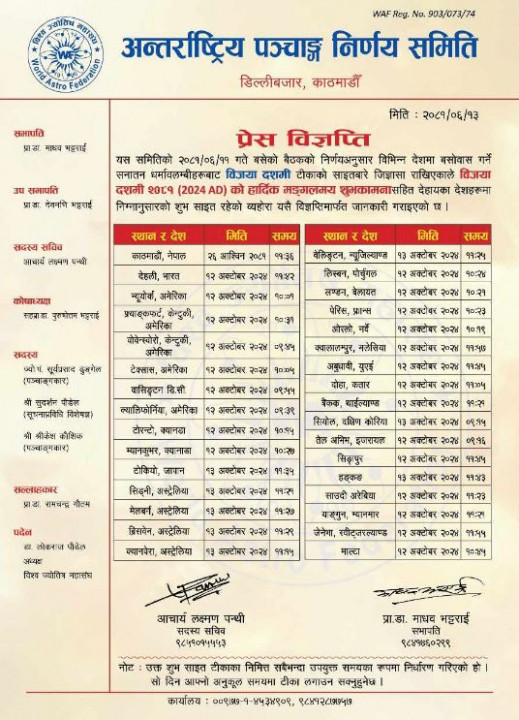 WAF Reg. No. 903/073/74
विश्व ज्योतिष महासंघ
WAF
World Astro Federation
अन्तर्राष्ट्रिय पञ्चाङ्ग निर्णय समिति
डिल्लीबजार, काठमाडौँ
मिति : २०८१/०६/१३
प्रेस विज्ञप्ति
यस समितिको २०८१/०६/११ गते बसेको बैठकको निर्णयअनुसार विभिन्न देशमा बसोवास गर्ने
सनातन धर्मावलम्बीहरूबाट विजया दशमी टीकाको साइतबारे जिज्ञासा राखिएकाले विजया
दशमी २०८१ (2024 AD) को हार्दिक मङ्गलमय शुभकामनासहित देहायका देशहरूमा
निम्नानुसारको शुभ साइत रहेको व्यहोरा यसै विज्ञप्तिमार्फत जानकारी गराइएको छ ।
सभापति
प्रा.डा. माधव भट्टराई
उप सभापति
प्रा.डा. देवमणि भट्टराई
सदस्य सचिव
आचार्य लक्ष्मण पन्थी
कोषाध्यक्ष
सहप्रा.डा. पुरुषोत्तम भट्टराई
सदस्य
ज्यो.पं. सूर्यप्रसाद ढुङ्गेल
(पञ्चाङ्गकार)
श्री सुदर्शन पौडेल
(सूचनाप्रविधि विशेषज्ञ)
श्री श्रीकेश कौशिक
(पञ्चाङ्गकार)
सल्लाहकार
प्रा.डा. रामचन्द्र गौतम
पदेन
डा. लोकराज पौडेल
अध्यक्ष
विश्व ज्योतिष महासंघ
स्थान र देश मिति समय
काठमाडौं, नेपाल २६ आश्विन २०८१ ११:३६
देहली, भारत १२ अक्टोबर २०२४ ११:४२
न्यूयोर्क, अमेरिका १२ अक्टोबर २०२४ १०:०१
फ्र्याङ्कफर्ट, केन्टुकी,
अमेरिका १२ अक्टोबर २०२४ १०:३१
वोवेन्स्वोरो, केन्टुकी,
अमेरिका १२ अक्टोबर २०२४ ०९:४५
टेक्सास, अमेरिका १२ अक्टोबर २०२४ १०:०५
वासिङ्टन डि.सी १२ अक्टोबर २०२४ ०९:५५
क्यालिफोर्निया, अमेरिका १२ अक्टोबर २०२४ ०९:३९
टोरन्टो, क्यानडा १२ अक्टोबर २०२४ १०:१५
भ्यानकुभर, क्यानाडा १२ अक्टोबर २०२४ १०:२७
टोकियो, जापान १२ अक्टोबर २०२४ ११:३५
सिड्नी, अस्ट्रेलिया १३ अक्टोबर २०२४ ११:२१
मेलबर्न, अस्ट्रेलिया १३ अक्टोबर २०२४ ११:२७
ब्रिसवेन, अस्ट्रेलिया १३ अक्टोबर २०२४ ११:२९
क्यानवेरा, अस्ट्रेलिया १३ अक्टोबर २०२४ ११:१५
स्थान र देश मिति समय
वेलिङ्टन, न्यूजिल्याण्ड १३ अक्टोबर २०२४ ११:२५
लिस्बन, पोर्चुगल १२ अक्टोबर २०२४ १०:२४
लण्डन, बेलायत १२ अक्टोबर २०२४ १०:२१
पेरिस, फ्रान्स १२ अक्टोबर २०२४ १०:२३
ओस्लो, नर्वे १२ अक्टोबर २०२४ १०:१९
क्यालालम्पुर, मलेसिया १२ अक्टोबर २०२४ ११:५७
अबुधावी, युएई १२ अक्टोबर २०२४ ११:४५
दोहा, कतार १२ अक्टोबर २०२४ ११:०५
बैंकक, थाईल्याण्ड १२ अक्टोबर २०२४ ११:२१
सियोल, दक्षिण कोरिया १३ अक्टोबर २०२४ ०९:१५
तेल अभिभ, इजरायल १२ अक्टोबर २०२४ ०९:१६
सिङ्गापुर १२ अक्टोबर २०२४ ११:४५
हङकङ १३ अक्टोबर २०२४ ११:४३
साउदी अरेबिया १२ अक्टोबर २०२४ ११:२३
याङ्गुन, म्यानमार १२ अक्टोबर २०२४ ११:२१
जेनेभा, स्वीट्जरल्याण्ड १२ अक्टोबर २०२४ ११:५५
माल्टा १२ अक्टोबर २०२४ १०:४५
आचार्य लक्ष्मण पन्थी
सदस्य सचिव
९८५१०१५५५३
प्रा.डा. माधव भट्टराई
सभापति
९८४१७६०२९९
नोट : उक्त शुभ साइत टीकाका निमित्त सबैभन्दा उपयुक्त समयका रूपमा निर्धारण गरिएको हो ।
सो दिन आफ्नो अनुकूल समयमा टीका लगाउन सक्नुहुनेछ ।
कार्यालय : ००९७७-१-४५३४९०९, ९८४१२८७५५७